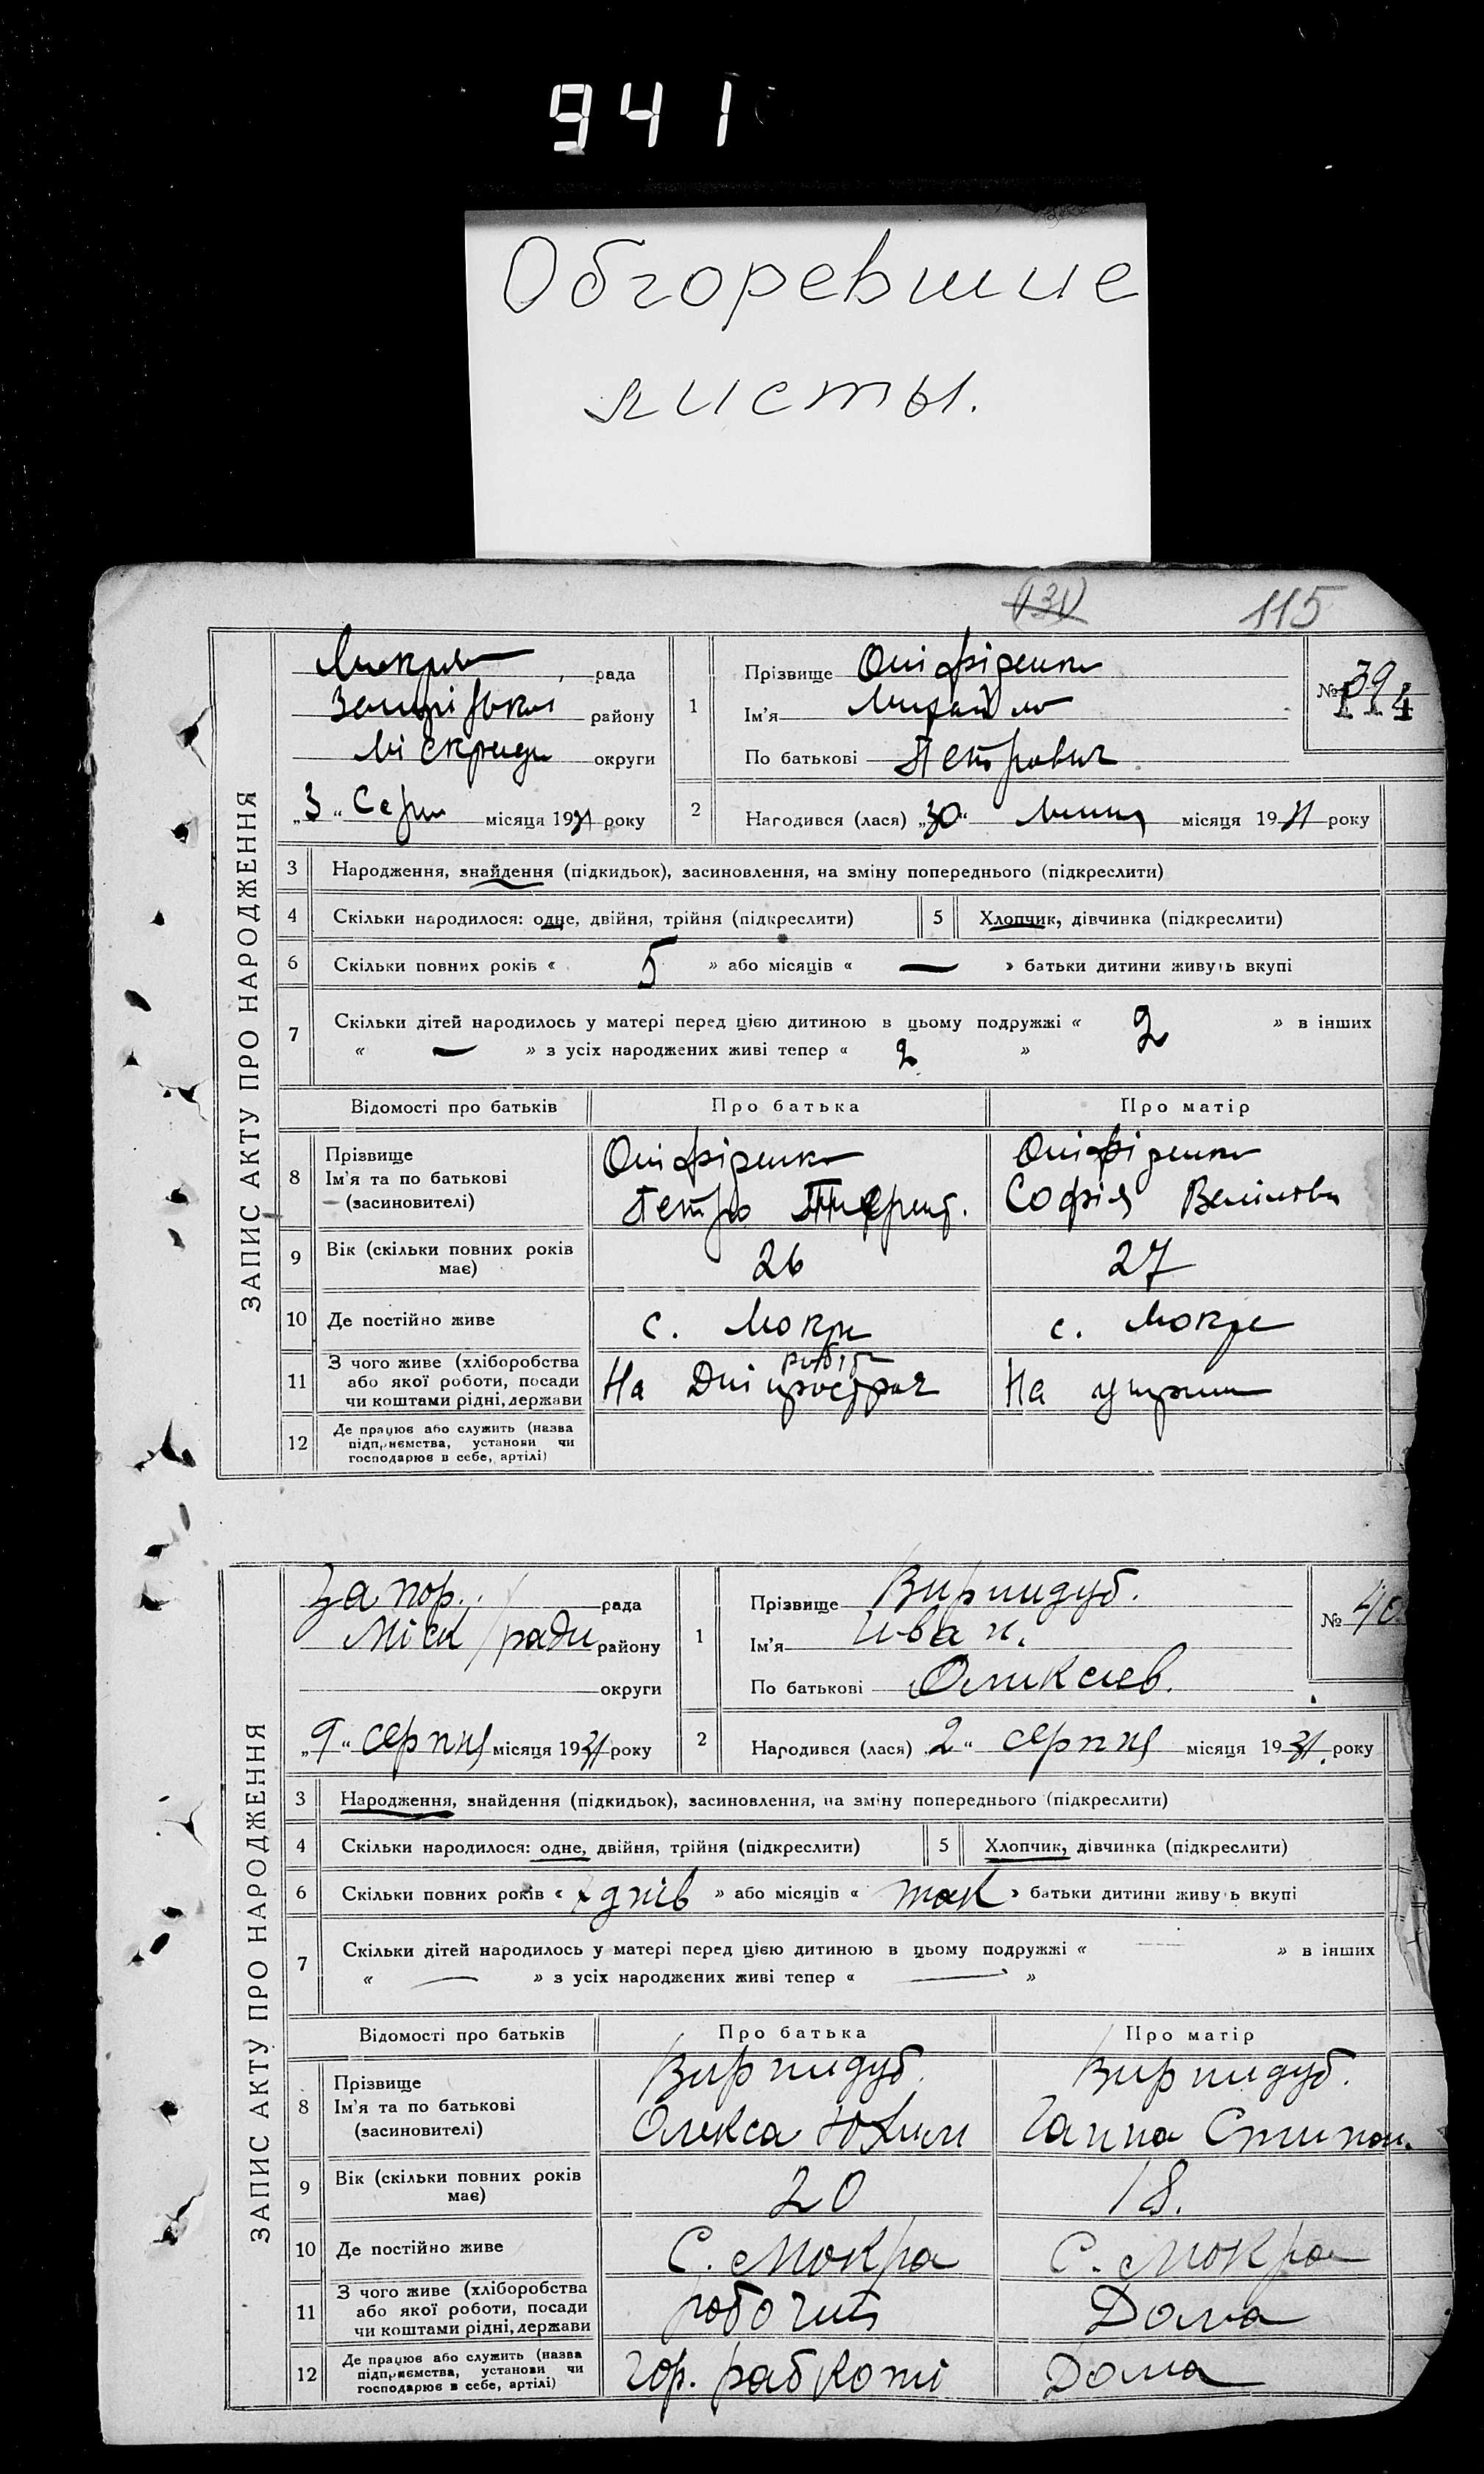 941
Обгоревшие
листы.
(131) 115
ЗАПИС АКТУ ПРО НАРОДЖЕННЯ
рада
району
округи
„3“ Серп місяця 1931 року
1
Прізвище
Ім'я Михайло
По батькові Петрович
№ 39
114
2
Народився (лася) „30“ Липня місяця 1931 року
3 Народження, знайдення (підкидьок), засиновлення, на зміну попереднього (підкреслити)
4 Скільки народилося: одне, двійня, трійня (підкреслити) 5 Хлопчик, дівчинка (підкреслити)
6 Скільки повних років « 5 » або місяців « — » батьки дитини живуть вкупі
7 Скільки дітей народилось у матері перед цією дитиною в цьому подружжі « 2 » в інших
« — » з усіх народжених живі тепер « 2 »
Відомості про батьків Про батька Про матір
8 Прізвище
Ім'я та по батькові Петро Софія
(засиновителі)
9 Вік (скільки повних років має) 26 27
10 Де постійно живе с. Мокре с. Мокре
11 З чого живе (хліборобства
або якої роботи, посади На На
чи коштами рідні, держави
12 Де працює або служить (назва
підприємства, установи чи
господарює в себе, артілі)
ЗАПИС АКТУ ПРО НАРОДЖЕННЯ
Запор. рада
Міськ/ради району
округи
„9“ серпня місяця 1931 року
1
Прізвище Вирпидуб.
Ім'я Иван.
По батькові Оликсиев.
№ 40
2
Народився (лася) „2“ серпня місяця 1931 року
3 Народження, знайдення (підкидьок), засиновлення, на зміну попереднього (підкреслити)
4 Скільки народилося: одне, двійня, трійня (підкреслити) 5 Хлопчик, дівчинка (підкреслити)
6 Скільки повних років « днів » або місяців « так » батьки дитини живуть вкупі
7 Скільки дітей народилось у матері перед цією дитиною в цьому подружжі « — » в інших
« — » з усіх народжених живі тепер « — »
Відомості про батьків Про батька Про матір
8 Прізвище Вирпидуб. Вирпидуб.
Ім'я та по батькові Олекса Юхим Ганна Стипан.
(засиновителі)
9 Вік (скільки повних років має) 20 18.
10 Де постійно живе С. Мокра С. Мокра
11 З чого живе (хліборобства
або якої роботи, посади робочий Дома
чи коштами рідні, держави
12 Де працює або служить (назва
підприємства, установи чи гор. рабкопі Дома
господарює в себе, артілі)